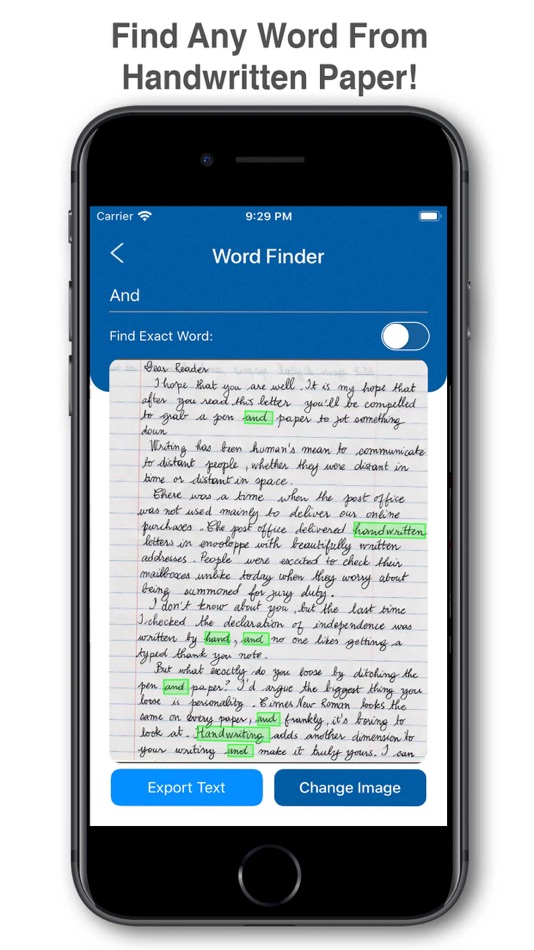 Find Any Word From
Handwritten Paper!
Carrier
9:29 PM
Word Finder
And
Find Exact Word:
Dear Reader
I hope that you are well. It is my hope that
after you read this letter you'll be compelled
to grab a pen and paper to jot something
down
Writing has been human's mean to communicate
to distant people, whether they were distant in
time or distant in space.
There was a time when the post office
was not used mainly to deliver our online
purchases. The post office delivered handwritten
letters in enveloppe with beautifully written
addresses. People were excited to check their
mailboxes unlike today when they worry about
being summoned for jury duty.
I don't know about you, but the last time
I checked the declaration of independence was
written by hand, and no one likes getting a
typed thank you note.
But what exactly do you loose by ditching the
pen and paper? I'd argue the biggest thing you
loose is personality. Times New Roman looks the
same on every paper, and frankly, it's boring to
look at. Handwriting adds another dimension to
your writing and make it truly yours. I can
Export Text
Change Image